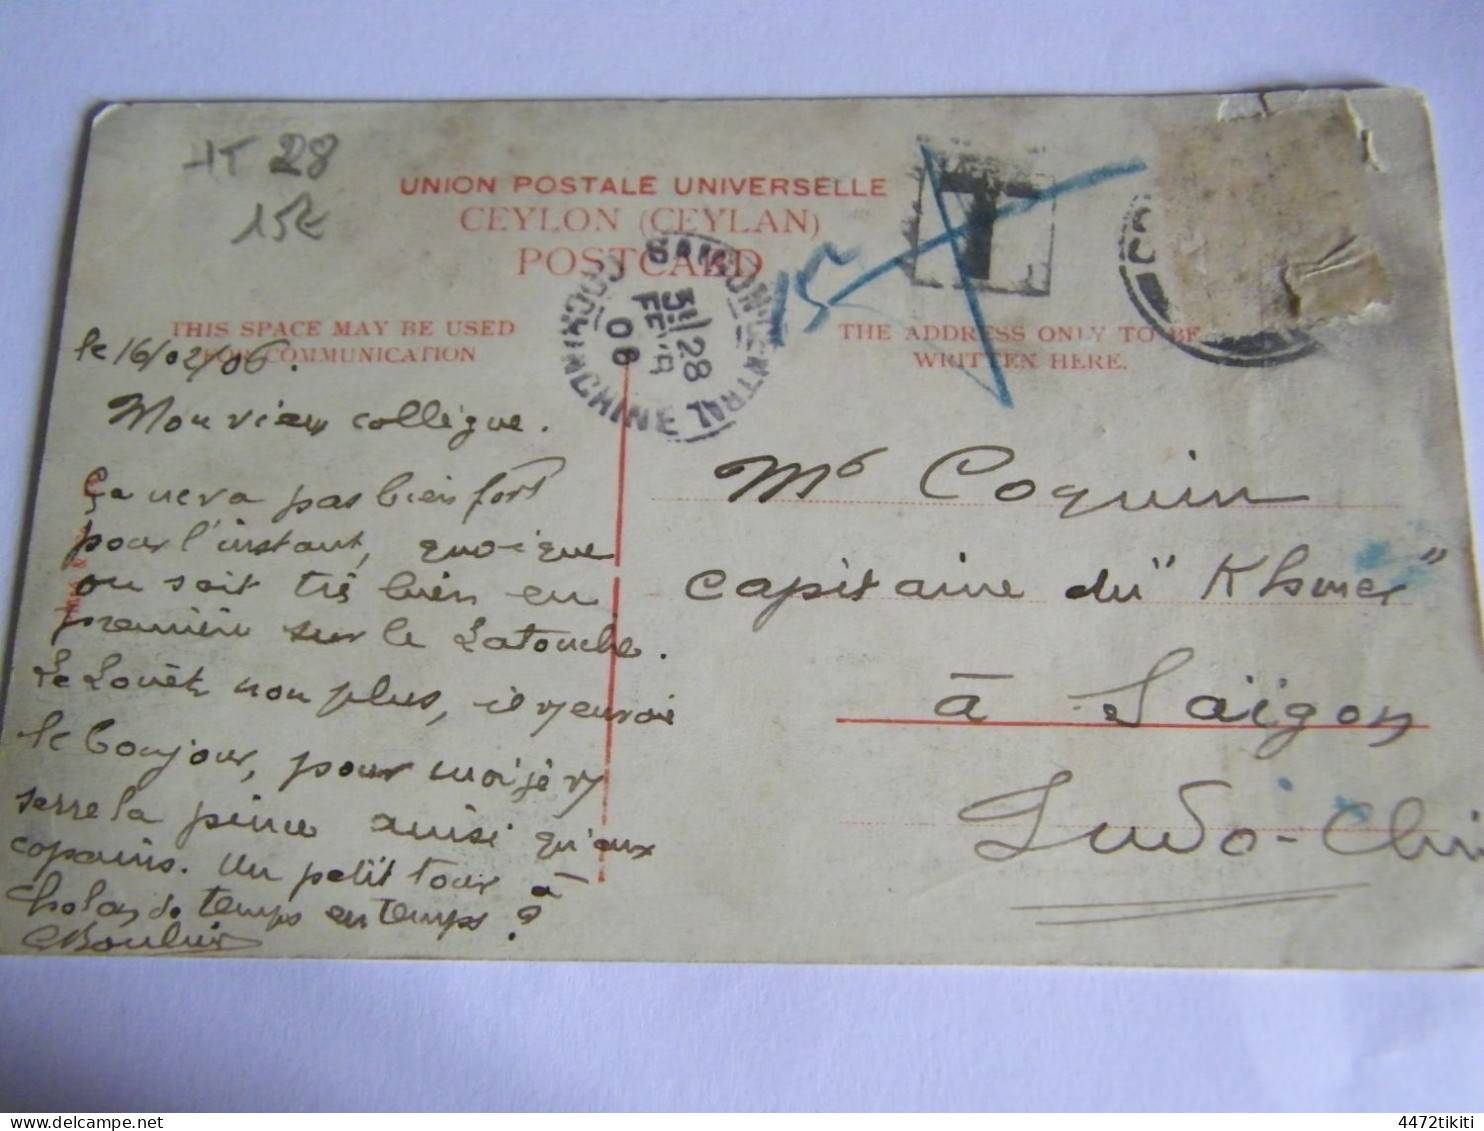 HT 28
15€
UNION POSTALE UNIVERSELLE
CEYLON (CEYLAN)
POSTCARD
T
15
SAIGON CENTRAL
COCHINCHINE
28
FEVR
06
THIS SPACE MAY BE USED
FOR COMMUNICATION
THE ADDRESS ONLY TO BE
WRITTEN HERE.
le 16/02/06.
Mon vieux collègue.
Ça ne va pas bien fort
pour l'instant, quoique
on soit très bien en
première sur le Latouche.
Le Louët non plus, il envoie
le bonjour, pour moi je
serre la pince ainsi qu'aux
copains. Un petit tour à
Cholon de temps en temps ?
Mr Coquin
capitaine du "Khmer"
à Saïgon
Indo-Chi
4472tikiti